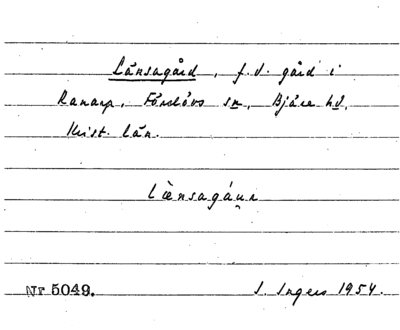 Länsagård, f.d. gård i
Ranarp, Förslövs sn, Bjäre hd,
Krist. län.
Lænsagáu̯n
Nr 5049. I. Ingers 1954.